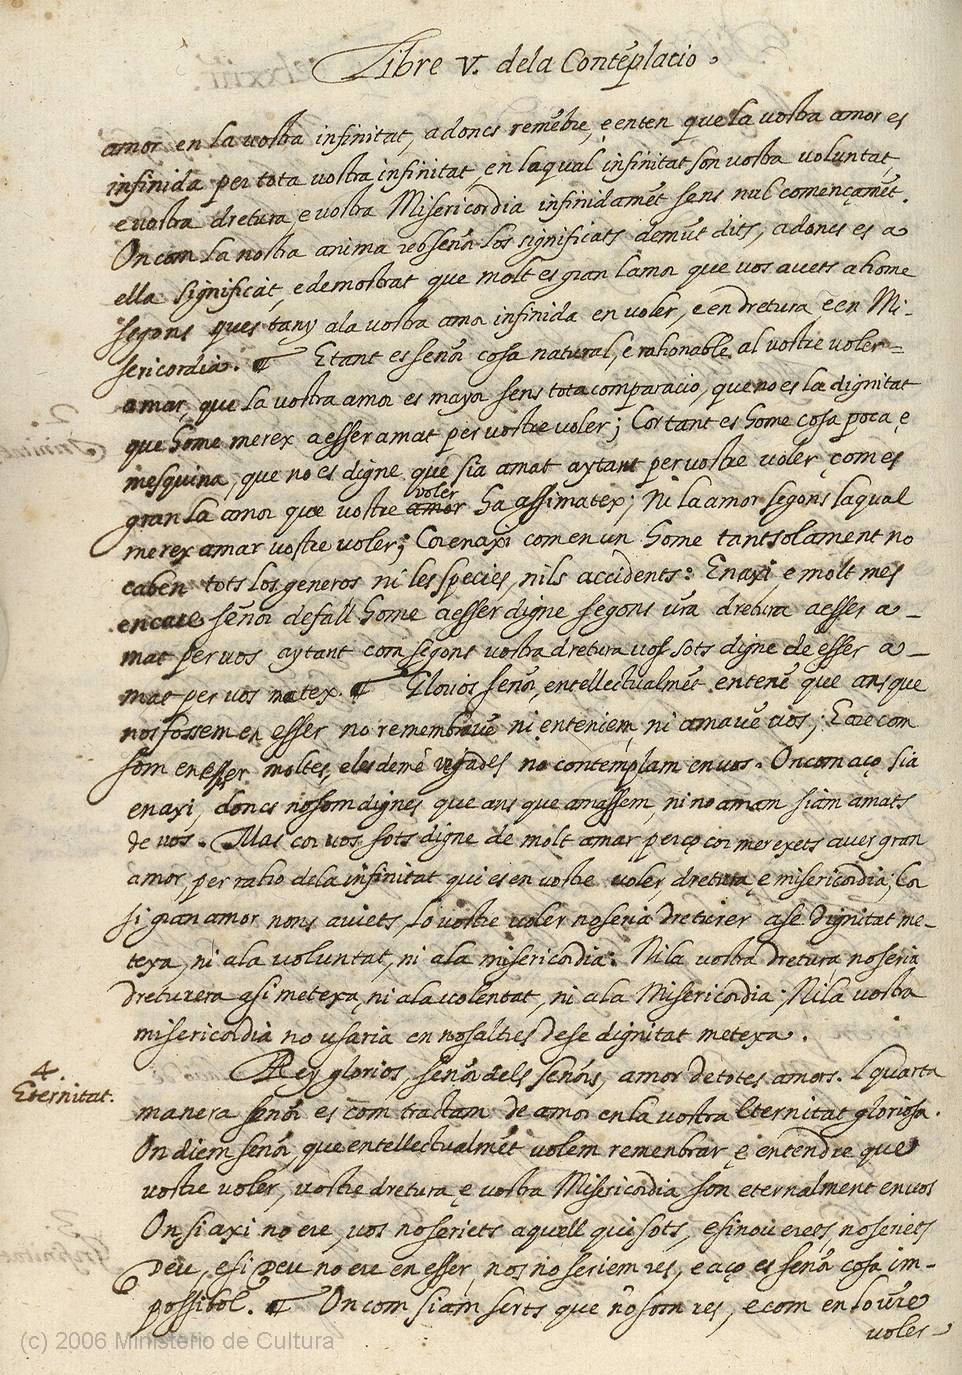 Libre V. dela Contẽplacio.
amor en la vostra infinitat, adoncs remẽbre, e enten que la vostra amor es
infinida per tota vostra infinitat, en laqual infinitat son vostra voluntat
e vostra dretura, e vostra Misericordia infinidamẽt sens nul començamẽt.
On com la nostra anima reb señor los significats demũt dits, adoncs es a
ella significat, e demostrat que molt es gran lamor que vos avets a home
segons ques tany ala vostra amor infinida en voler, e en dretura e en Mi-
sericordia. ¶ E tant es señor cosa natural, e rationable al vostre voler=
amar, que la vostra amor es mayor sens tota comparacio, que no es la dignitat
que home merex a esser amat per vostre voler; Cor tant es home cosa poca e
mesquina, que no es digne que sia amat aytant per vostre voler com es
gran la amor que vostre amor voler ha assi matex; Ni la amor segons laqual
merex amar vostre voler; Cor enaxi com en un home tantsolament no
caben tots los generos ni les species, nils accidents: Enaxi, e molt mes
encare señor defall home a esser digne segons vr̃a dretura a esser a-
mat per vos aytant com segons vostra dretura vos sots digne de esser a-
mat per vos matex. ¶ Glorios señor, entellectualmẽt entenẽ que ans que
nos fossem en esser no remembravẽ ni enteniem, ni amavẽ vos; E are com
som en esser moltes, e les demẽ vegades no contemplam en vos. On com aço sia
enaxi, doncs no som dignes que ans que amassem, ni no amam siam amats
de vos. Mas cor vos sots digne de molt amar perço cor merexets aver gran
amor, per ratio dela infinitat qui es en vostre voler dretura, e misericordia; Cor
si gran amor nons aviets, lo vostre voler no seria dreturer a se dignitat me-
texa, ni ala voluntat, ni ala misericordia: Ni la vostra dretura no seria
dreturera asi metexa, ni ala volentat, ni ala Misericordia; Ni la vostra
misericordia no usaria en nosaltres de se dignitat metexa.
4.
Eternitat.
Rey glorios, señor dels señors, amor de totes amors. Lquarta
manera señor es com tractam de amor en la vostra Eternitat gloriosa.
On diem señor, que entellectualmẽt volem remenbrar, e entendre que
vostre voler, vostre dretura e vostra Misericordia son eternalment en vos
On si axi no ere, vos no seriets aquell qui sots, e si nou erets, no seriets
Deu, e si Deu no ere en esser, nos no seriem res, e aço es señor cosa im-
possibol. ¶ On com siam serts que nosom res, e com en lo vr̃e
voler
(c) 2006 Ministerio de Cultura